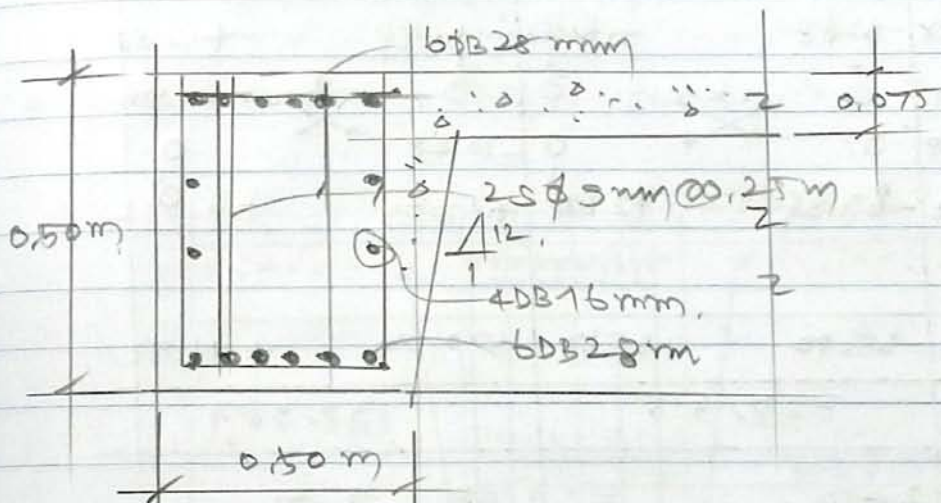 6DB28 mm
0.075
2Sφ9mm@0.25m
0.50m
12
1
4DB16mm.
6DB28m
0.50 m